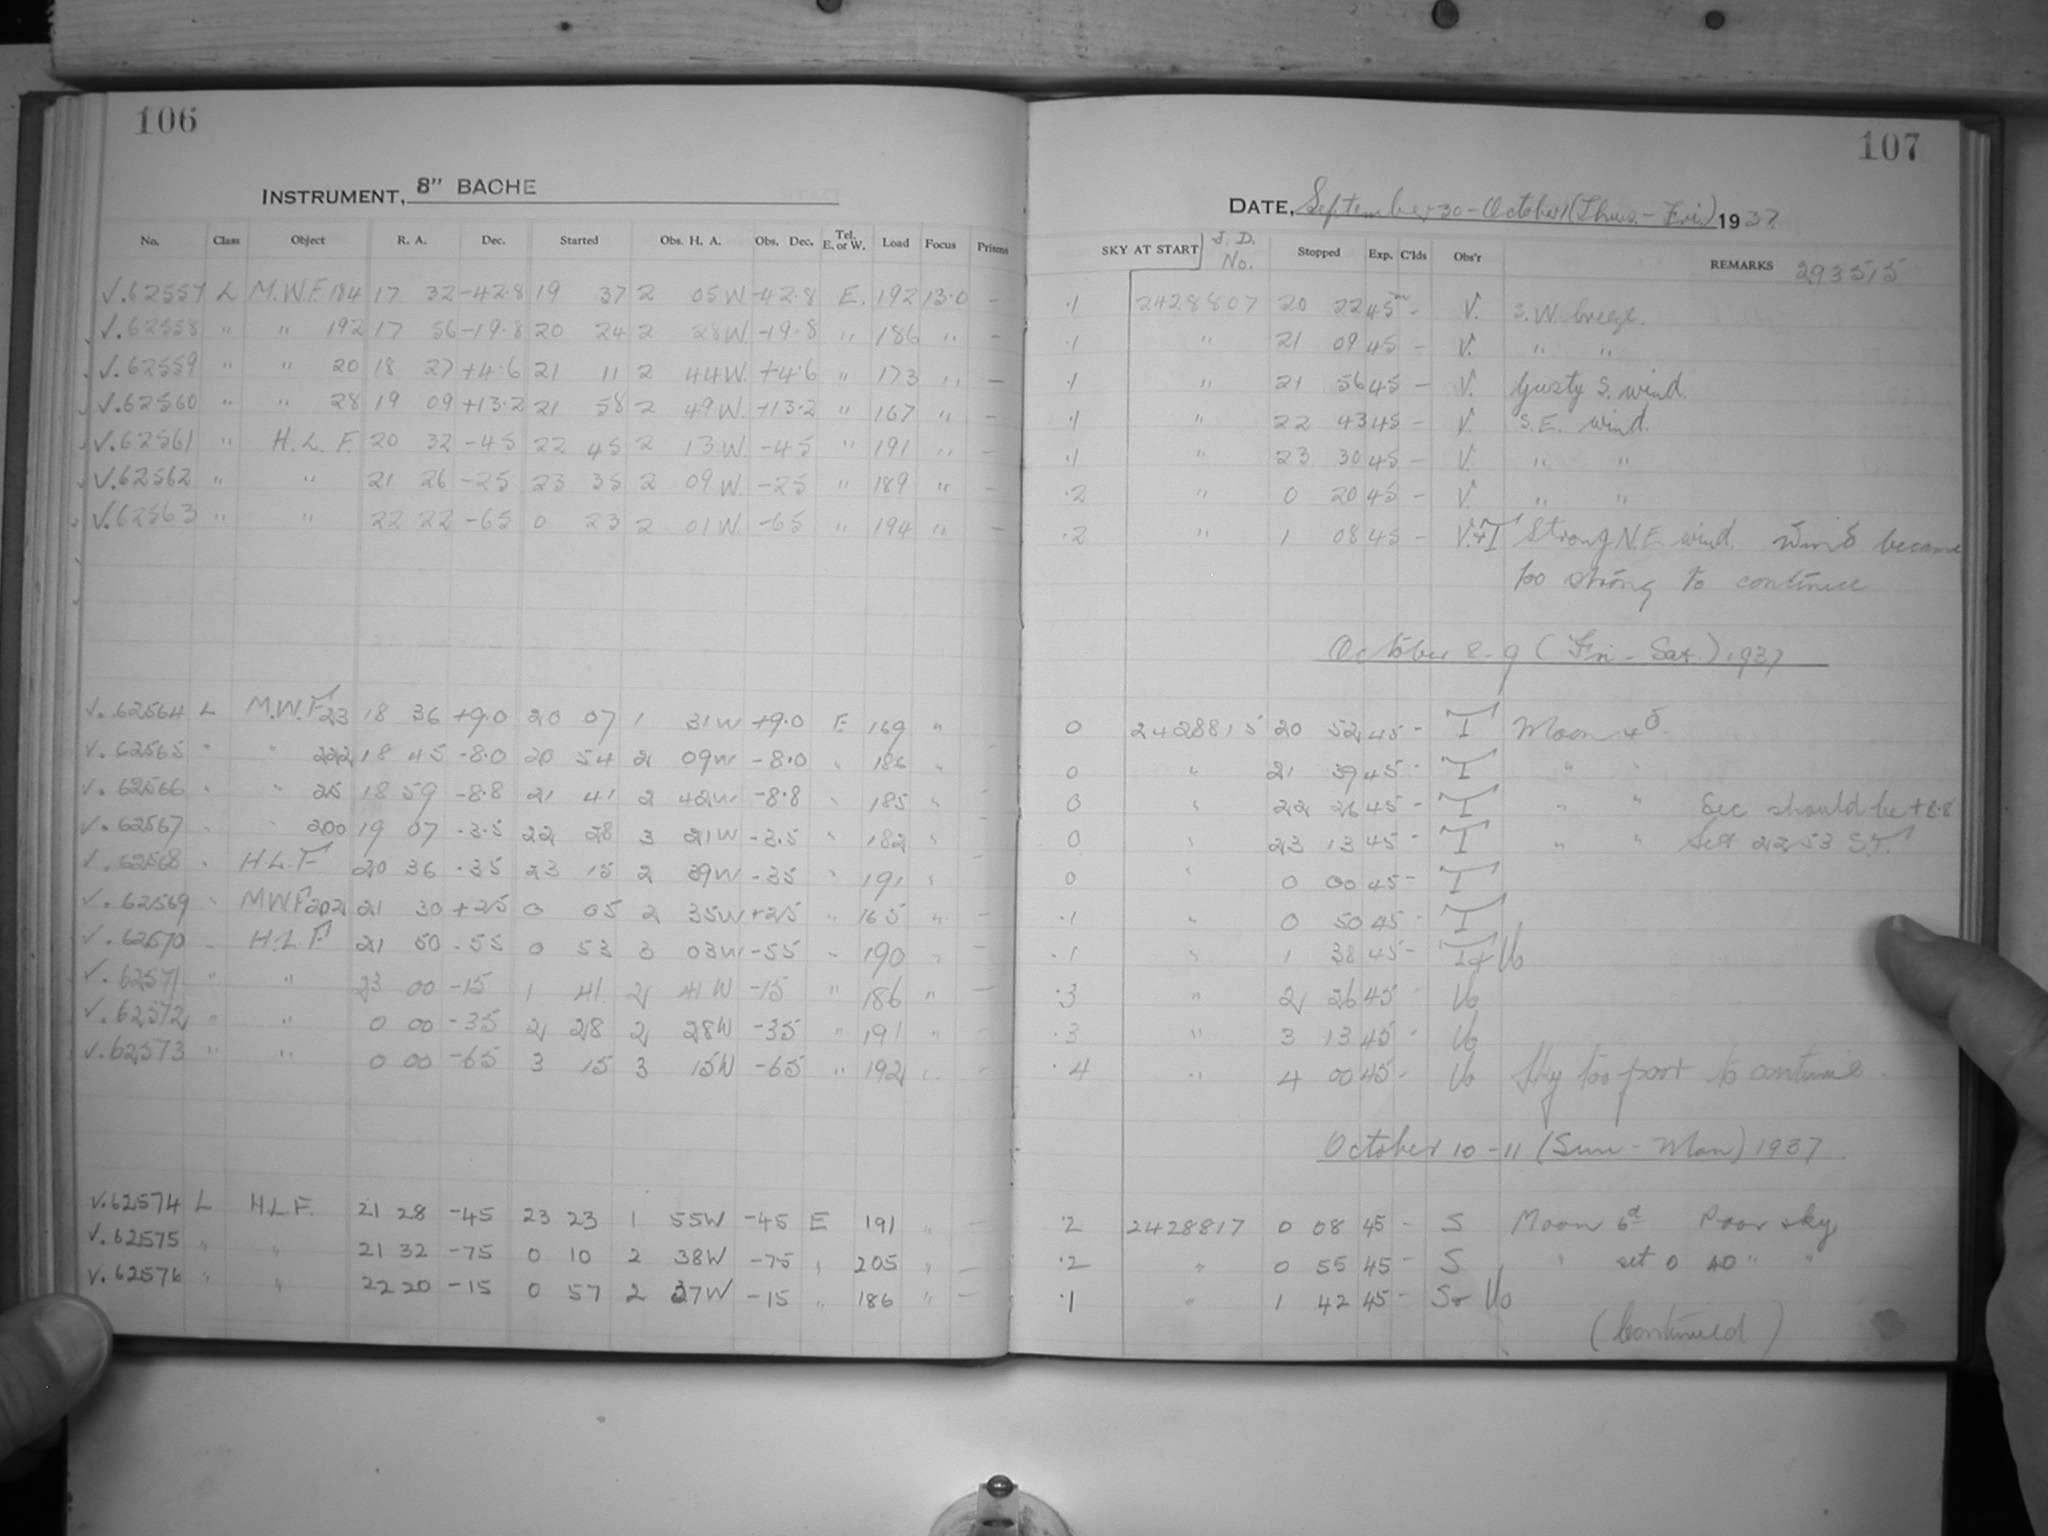 106
INSTRUMENT, 8" BACHE
No. Class Object R. A. Dec. Started Obs. H. A. Obs. Dec. Tel. E. or W. Load Focus Prisms
V.62557 L M.W.F. 184 17 32 -42.8 19 37 2 05W -42.8 E. 192 13.0 -
V.62558 " " 192 17 56 -19.8 20 24 2 28W -19.8 " 186 " -
V.62559 " " 20 18 27 +4.6 21 11 2 44W. +4.6 " 173 " -
V.62560 " " 28 19 09 +13.2 21 58 2 49W. +13.2 " 167 " -
V.62561 " H.L.F. 20 32 -45 22 45 2 13W. -45 " 191 " -
V.62562 " " 21 26 -25 23 35 2 09W. -25 " 189 " -
V.62563 " " 22 22 -65 0 23 2 01W. -65 " 194 " -
V.62564 L M.W.F. 23 18 36 +9.0 20 07 1 31W +9.0 E 169 "
V.62565 " " 222 18 45 -8.0 20 54 2 09W -8.0 " 186 " -
V.62566 " " 25 18 59 -8.8 21 41 2 42W -8.8 " 185 " -
V.62567 " " 200 19 07 -3.5 22 28 3 21W -3.5 " 182 " -
V.62568 " H.L.F. 20 36 -35 23 15 2 39W -35 " 191 " -
V.62569 " MWF 202 21 30 +25 0 05 2 35W +25 " 165 " -
V.62570 " H.L.F. 21 50 -55 0 53 3 03W -55 " 190 " -
V.62571 " " 23 00 -15 1 41 2 41W -15 " 186 " -
V.62572 " " 0 00 -35 2 28 2 28W -35 " 191 " -
V.62573 " " 0 00 -65 3 15 3 15W -65 " 192 " -
V.62574 L H.L.F. 21 28 -45 23 23 1 55W -45 E 191 " -
V.62575 " " 21 32 -75 0 10 2 38W -75 " 205 " -
V.62576 " " 22 20 -15 0 57 2 37W -15 " 186 " -
107
DATE, September 30 - October 1 (Thurs - Fri) 1937.
SKY AT START J. D. No. Stopped Exp. C'lds Obs'r REMARKS 293515
.1 2428807 20 22 45m - V. S.W. breeze.
.1 " 21 09 45 - V. " "
.1 " 21 56 45 - V. Gusty S. wind.
.1 " 22 43 45 - V. S.E. wind.
.1 " 23 30 45 - V. " "
.2 " 0 20 45 - V. " "
.2 " 1 08 45 - V.+T Strong N.E. wind. Wind became
too strong to continue
October 8-9 (Fri - Sat.) 1937
0 2428815 20 52 45 - T Moon
0 " 21 39 45 - T " "
0 " 22 26 45 - T " " Dec should be +8.8
0 " 23 13 45 - T " " Set 22 53 S.T.
0 " 0 00 45 - T
.1 " 0 50 45 - T
.1 " 1 38 45 - T+Vo
.3 " 2 26 45 - Vo
.3 " 3 13 45 - Vo
.4 " 4 00 45 - Vo Sky too poor to continue.
October 10-11 (Sun - Mon) 1937
.2 2428817 0 08 45 - S Moon 6d Poor sky
.2 " 0 55 45 - S " set 0 40 " "
.1 " 1 42 45 - S+Vo
(Continued)